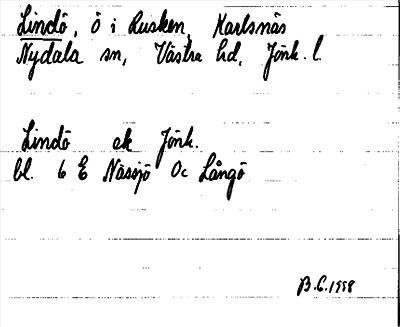 Lindö, ö i Rusken, Karlsnäs
Nydala sn, Västra hd, Jönk. l.
Lindö ek Jönk.
bl. 6 E Nässjö Oc Långö
B.C. 1958